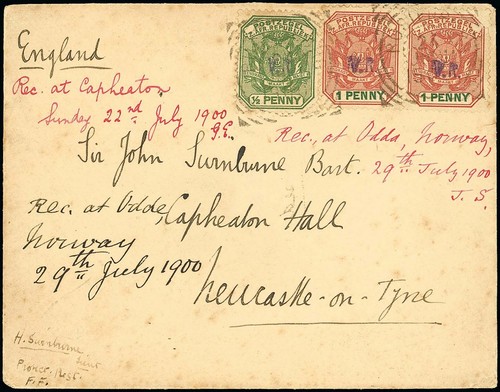 England
POSTZEGEL
Z. AFR. REPUBLIEK
V.R.
½ PENNY
POSTZEGEL
Z. AFR. REPUBLIEK
V.R.
1 PENNY
POSTZEGEL
Z. AFR. REPUBLIEK
V.R.
1 PENNY
Rec. at Capheaton
Sunday 22nd July 1900
J.E.
Rec. at Odda, Norway,
29th July 1900
J.S.
Sir John Swinburne Bart.
Capheaton Hall
Newcastle-on-Tyne
Rec. at Odde
Norway
29th July 1900
H. Swinburne
Lieut
Pioneer Regt.
F.F.